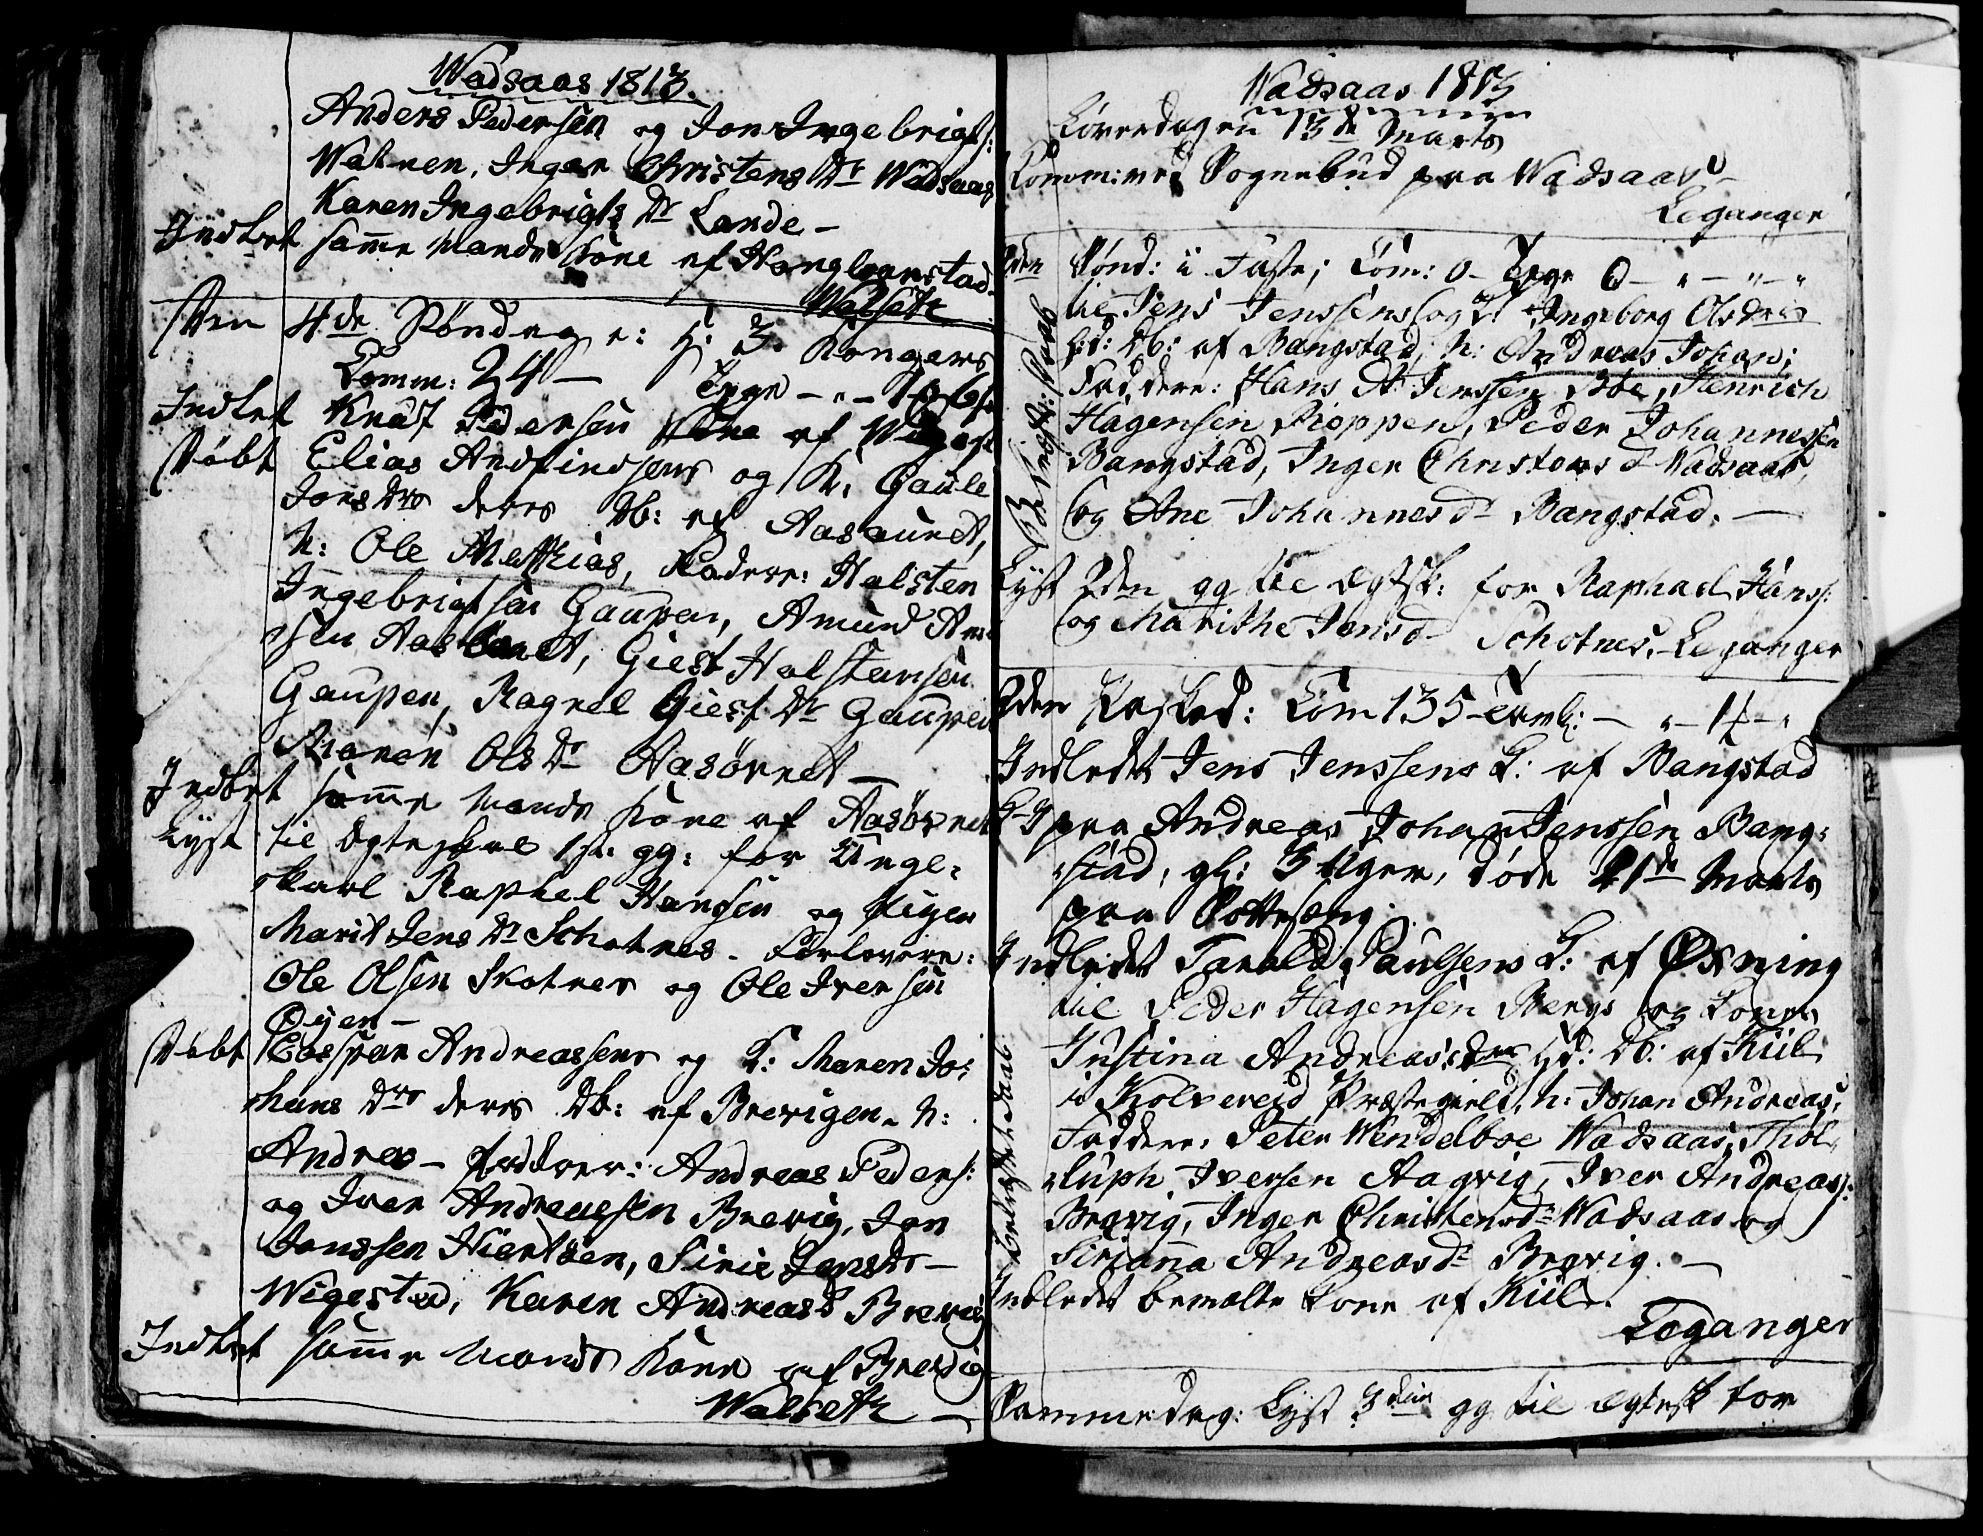 Wadsaas 1813.
Anders Pedersen og Jon Ingebrigts:
Watnen, Inger Christens Dr Wadsaas
Karen Ingebrigts Dr Lande –
Indledt samme Mands Kone af
Walseth
Den 4de Søndag e: H: 3. Kongers
Comm: 24 –
Indled Knut Pedersens Kone af
Døbt Elias Andfindsens og K: Gaule
Jons Drs deres Db: af Aasauret,
N: Ole Mathias, Faddere: Halsten
Ingebrigtsen Gaupen, Amund
sen, Giest Halstensen
Gaupen, Ragnel Giest Dr Gaupen
Maren Ols Dr Aasørnet –
Indledt samme Mands Kone af Aasørnet
Lyst til Ægteskab 1st: gg: for Unge-
karl Raphel Hansen og Pigen
Marit Jens Dr Schotnes. Forlovere:
Ole Olsen Skotnes og Ole Iversen
Øyen –
Døbt Caspar Andreassens og K: Maren Jo-
hans Drs deres Db: af Brevigen. N:
Andreas – Faddere: Andreas Peders:
og Iver Andreasen Brevig, Jon
Janssen Hiertøen, Sirie Jens Dr –
Wigestad, Karen Andreas D Brevig
Indledt samme Mands Kone af Brevig
Walseth –
Wadsaas 1813
Løverdagen 13de Marts
Comm: ved Sognebud paa Wadsaas
Leganger
2den Sønd: i Faste; Com: 0 – Tavle 0 – " – " – "
Til Jens Jenssens og K: Ingeborg Olsdrs
Db: af Bangstad, N: Andreas Johan;
Faddere: Hans A Jenssen Boe, Henrich
Hagensen Roppen, Peder Johannessen
Bangstad, Inger Christens d Wadsaas,
og Ane Johannes dr Bangstad. –
Lyst 2den gg til Ægtsk: for Raphael Hanss:
og Marithe Jens d– Schotnes. – Leganger
2den Paasked: Com 135
Indledt Jens Jenssens K: af Bangstad
paa Andreas Johan Jenssen Bang-
stad, gl: 3 Uger, døde 21de Marts
paa Sottesæng.
Indledt Tarald Paulsens K: af Oxning
til Peder Hagensen Bergs og Kones
Justina Andreasdrs Db: af Kiil
i Kolvereid Præstegield, N: Johan Andreas;
Faddere: Peter Wendelboe Wadsaas, Thol-
luph Iversen Aagvig, Iver Andreass:
Brevig, Inger Christensdr Wadsaas og
Sirianna Andreasdr Brevig. –
Indledt bemelte Kone af Kiil.
Leganger
Sammedag: Lyst 3die gg til Ægtesk for